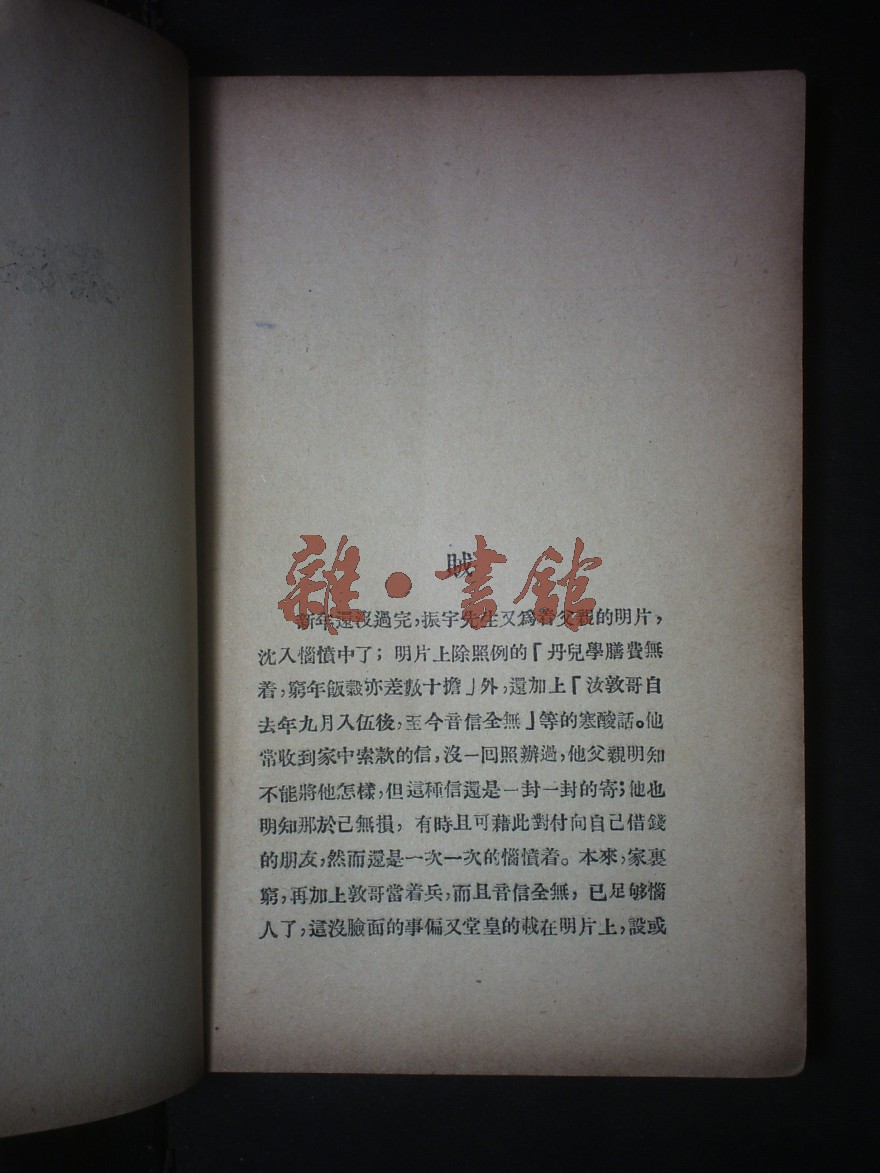 賊
雜·書館
新年還沒過完,振宇先生又爲着父親的明片,
沈入惱憤中了;明片上除照例的「丹兒學膳費無
着,窮年飯穀亦差數十擔」外,還加上「汝敦哥自
去年九月入伍後,至今音信全無」等的寒酸話。他
常收到家中索款的信,沒一回照辦過,他父親明知
不能將他怎樣,但這種信還是一封一封的寄;他也
明知那於己無損,有時且可藉此對付向自己借錢
的朋友,然而還是一次一次的惱憤着。本來,家裏
窮,再加上敦哥當着兵,而且音信全無,已足够惱
人了,這沒臉面的事偏又堂皇的載在明片上,設或